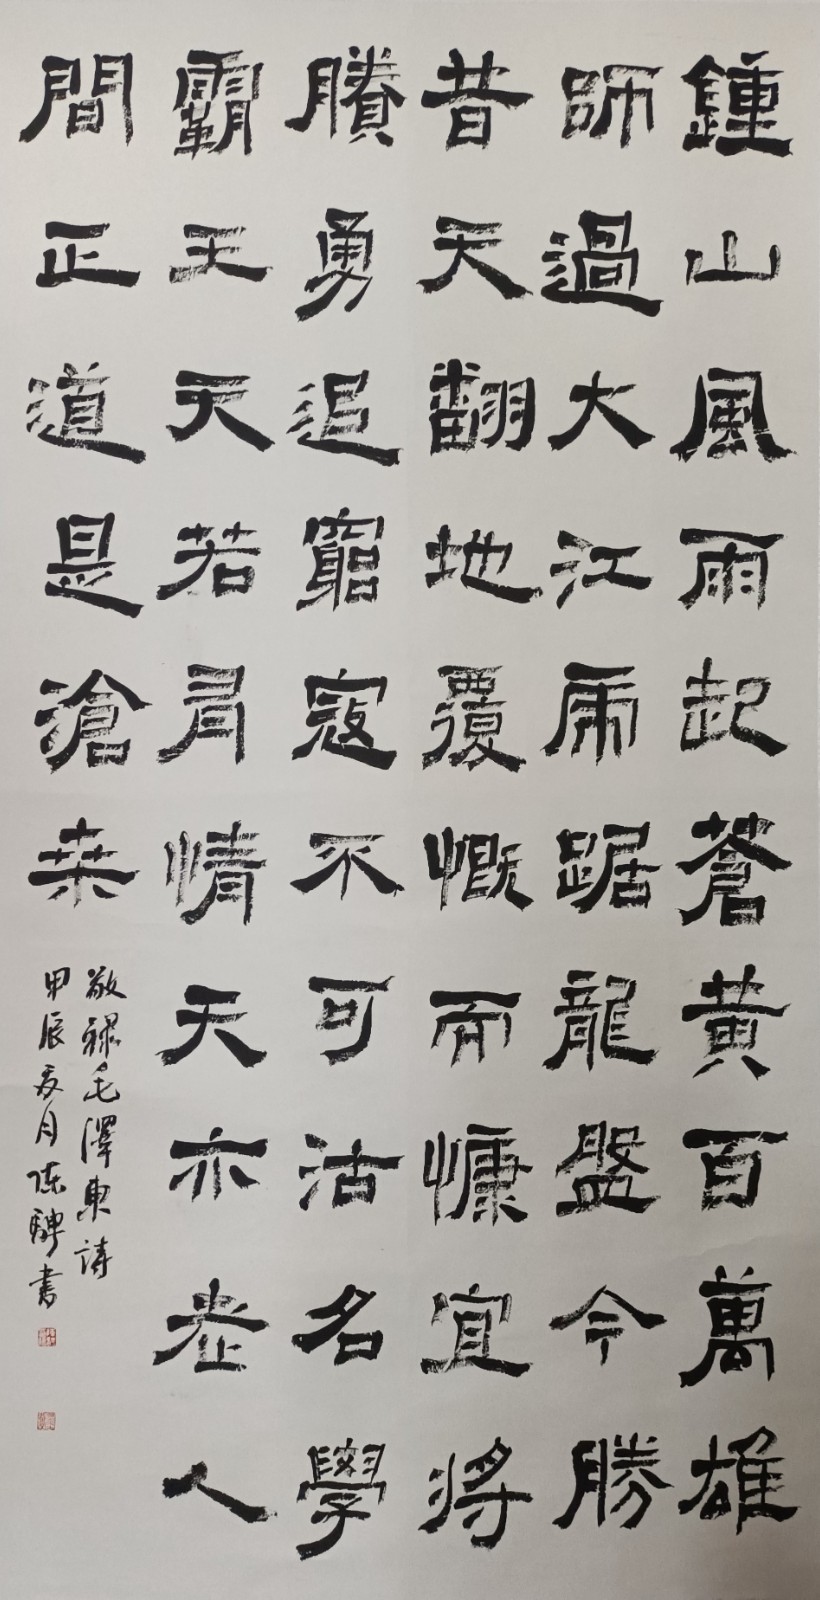 鍾山風雨起蒼黄百萬雄
師過大江虎踞龍盤今勝
昔天翻地覆慨而慷宜將
賸勇追窮寇不可沽名學
霸王天若有情天亦老人
間正道是滄桒
敬録毛澤東詩
甲辰夏月陳書